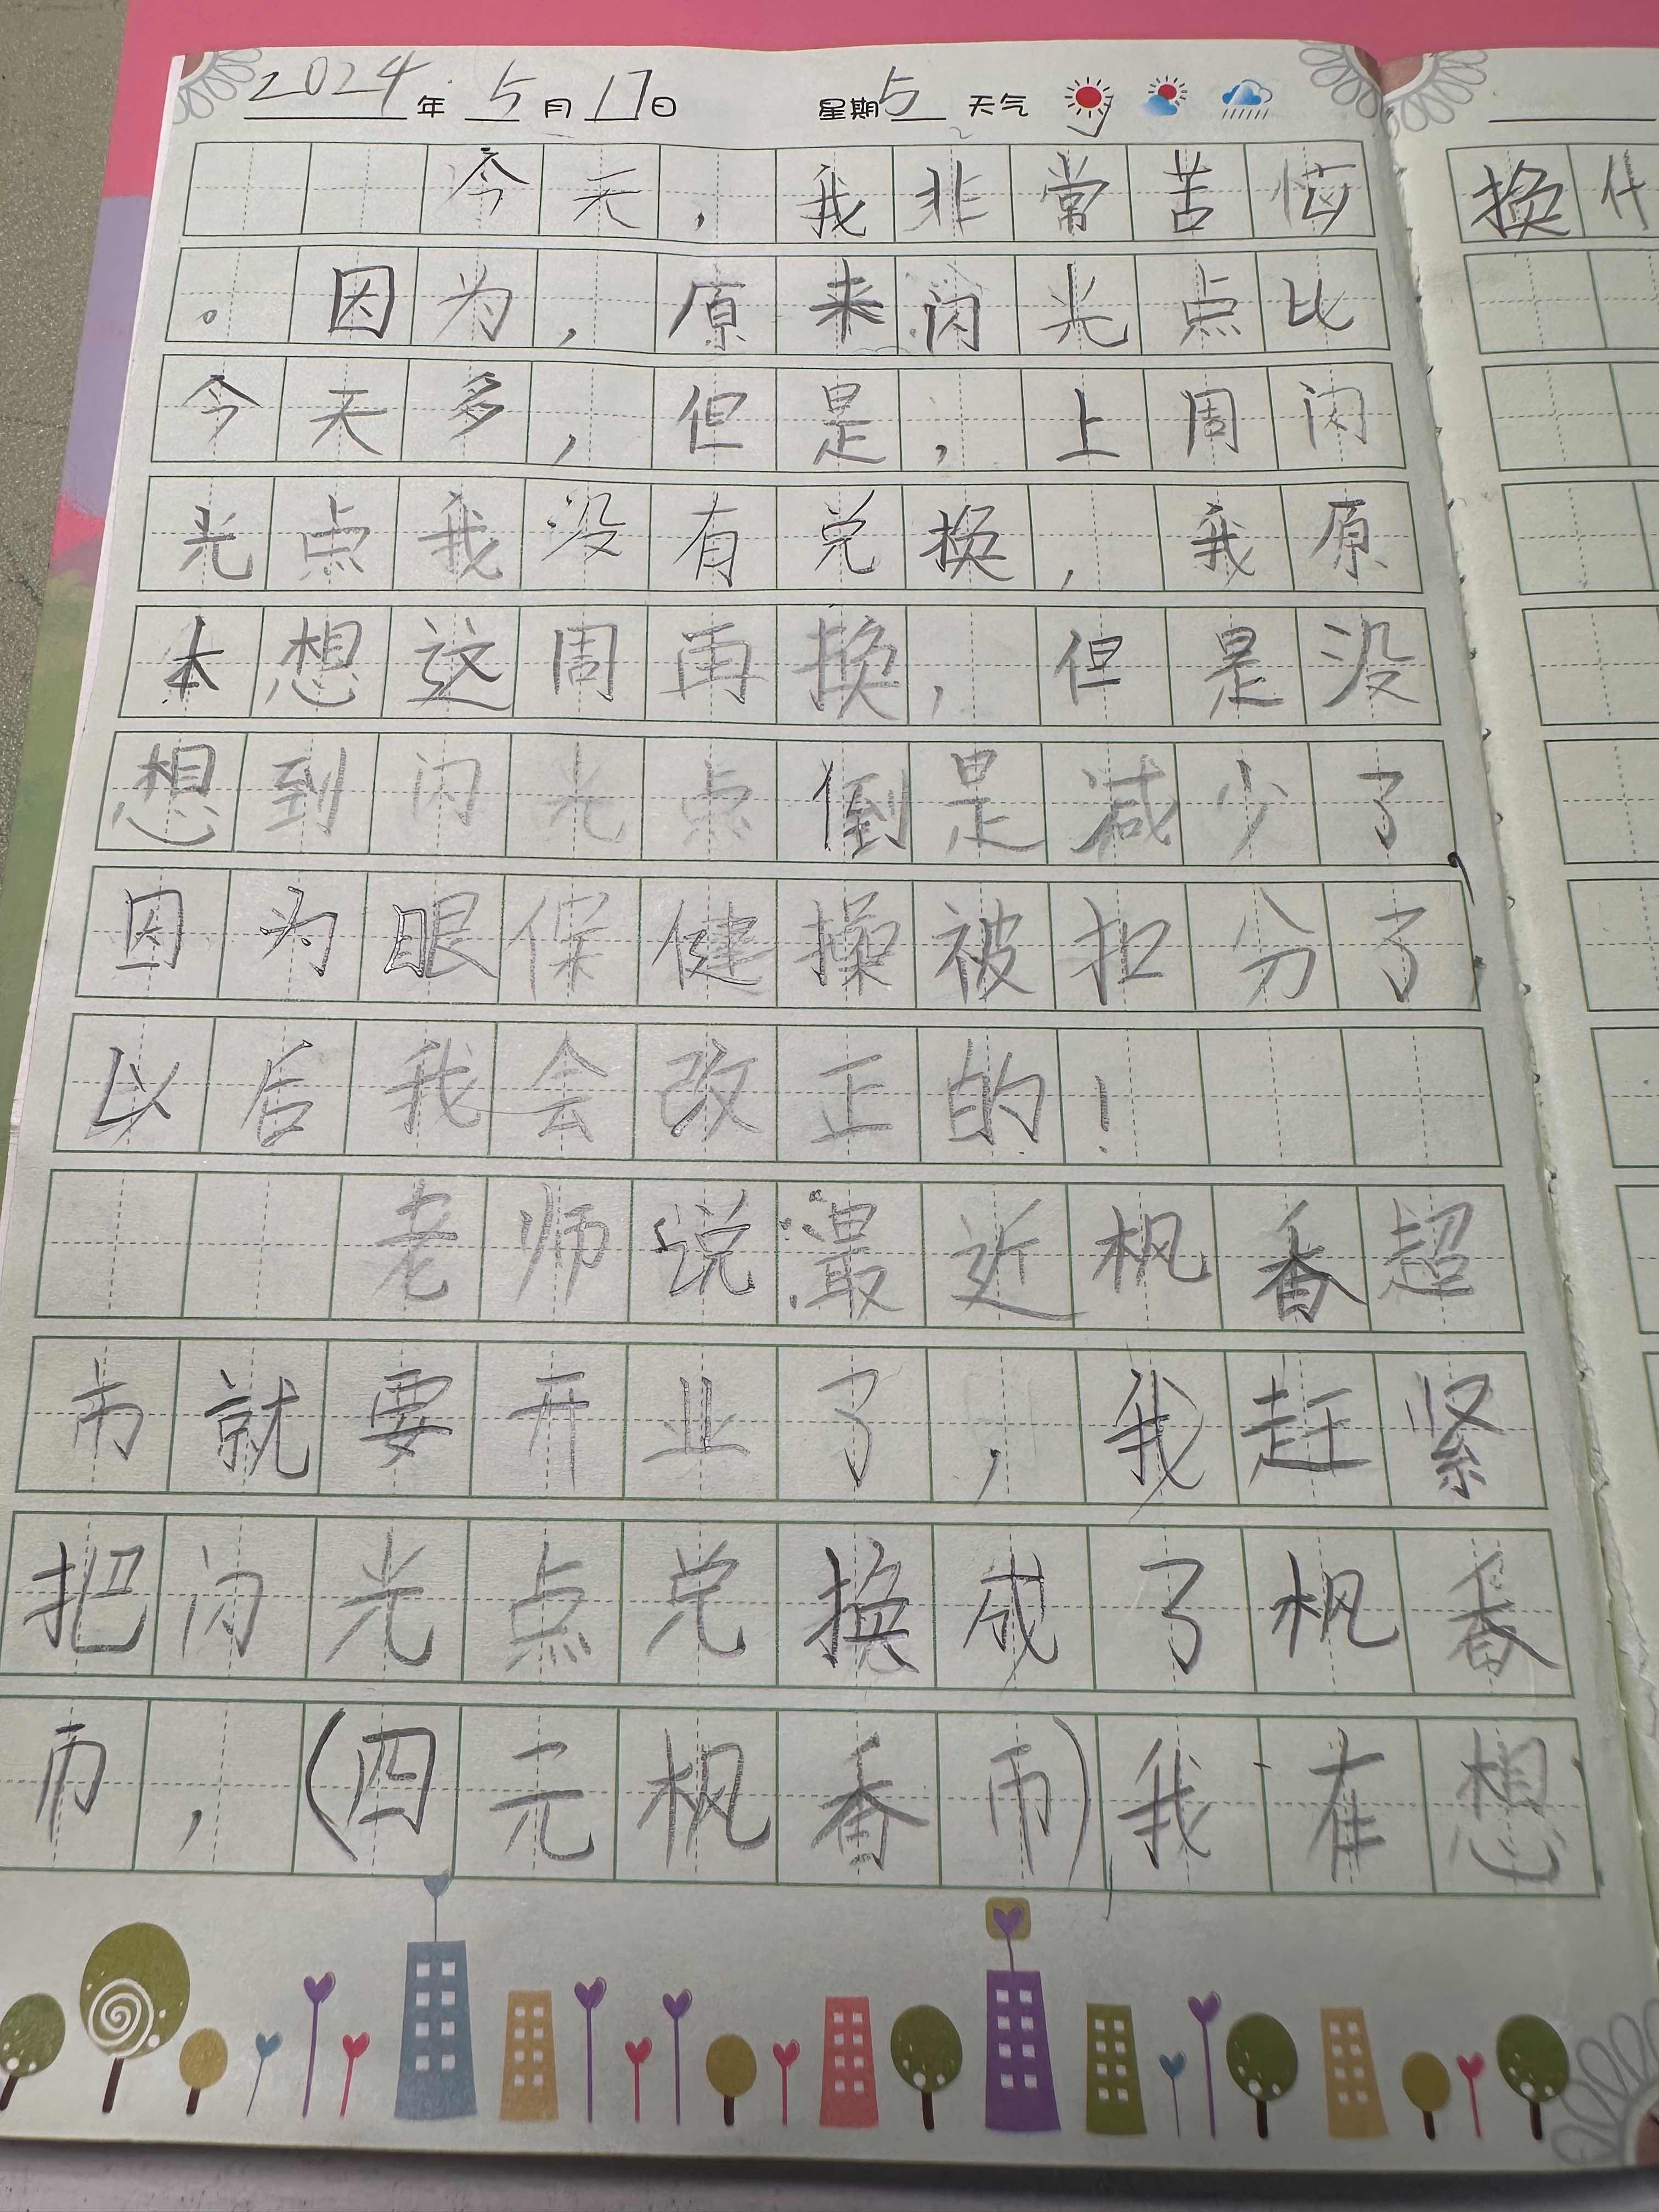 2024年 5月17日 星期5 天气
今天，我非常苦恼
。因为，原来闪光点比
今天多，但是，上周闪
光点我没有兑换，我原
本想这周再换，但是没
想到闪光点倒是减少了，
因为眼保健操被扣分了，
以后我会改正的！
老师说最近枫香超
市就要开业了，我赶紧
把闪光点兑换成了枫香
币，(四元枫香币)我在想
换什